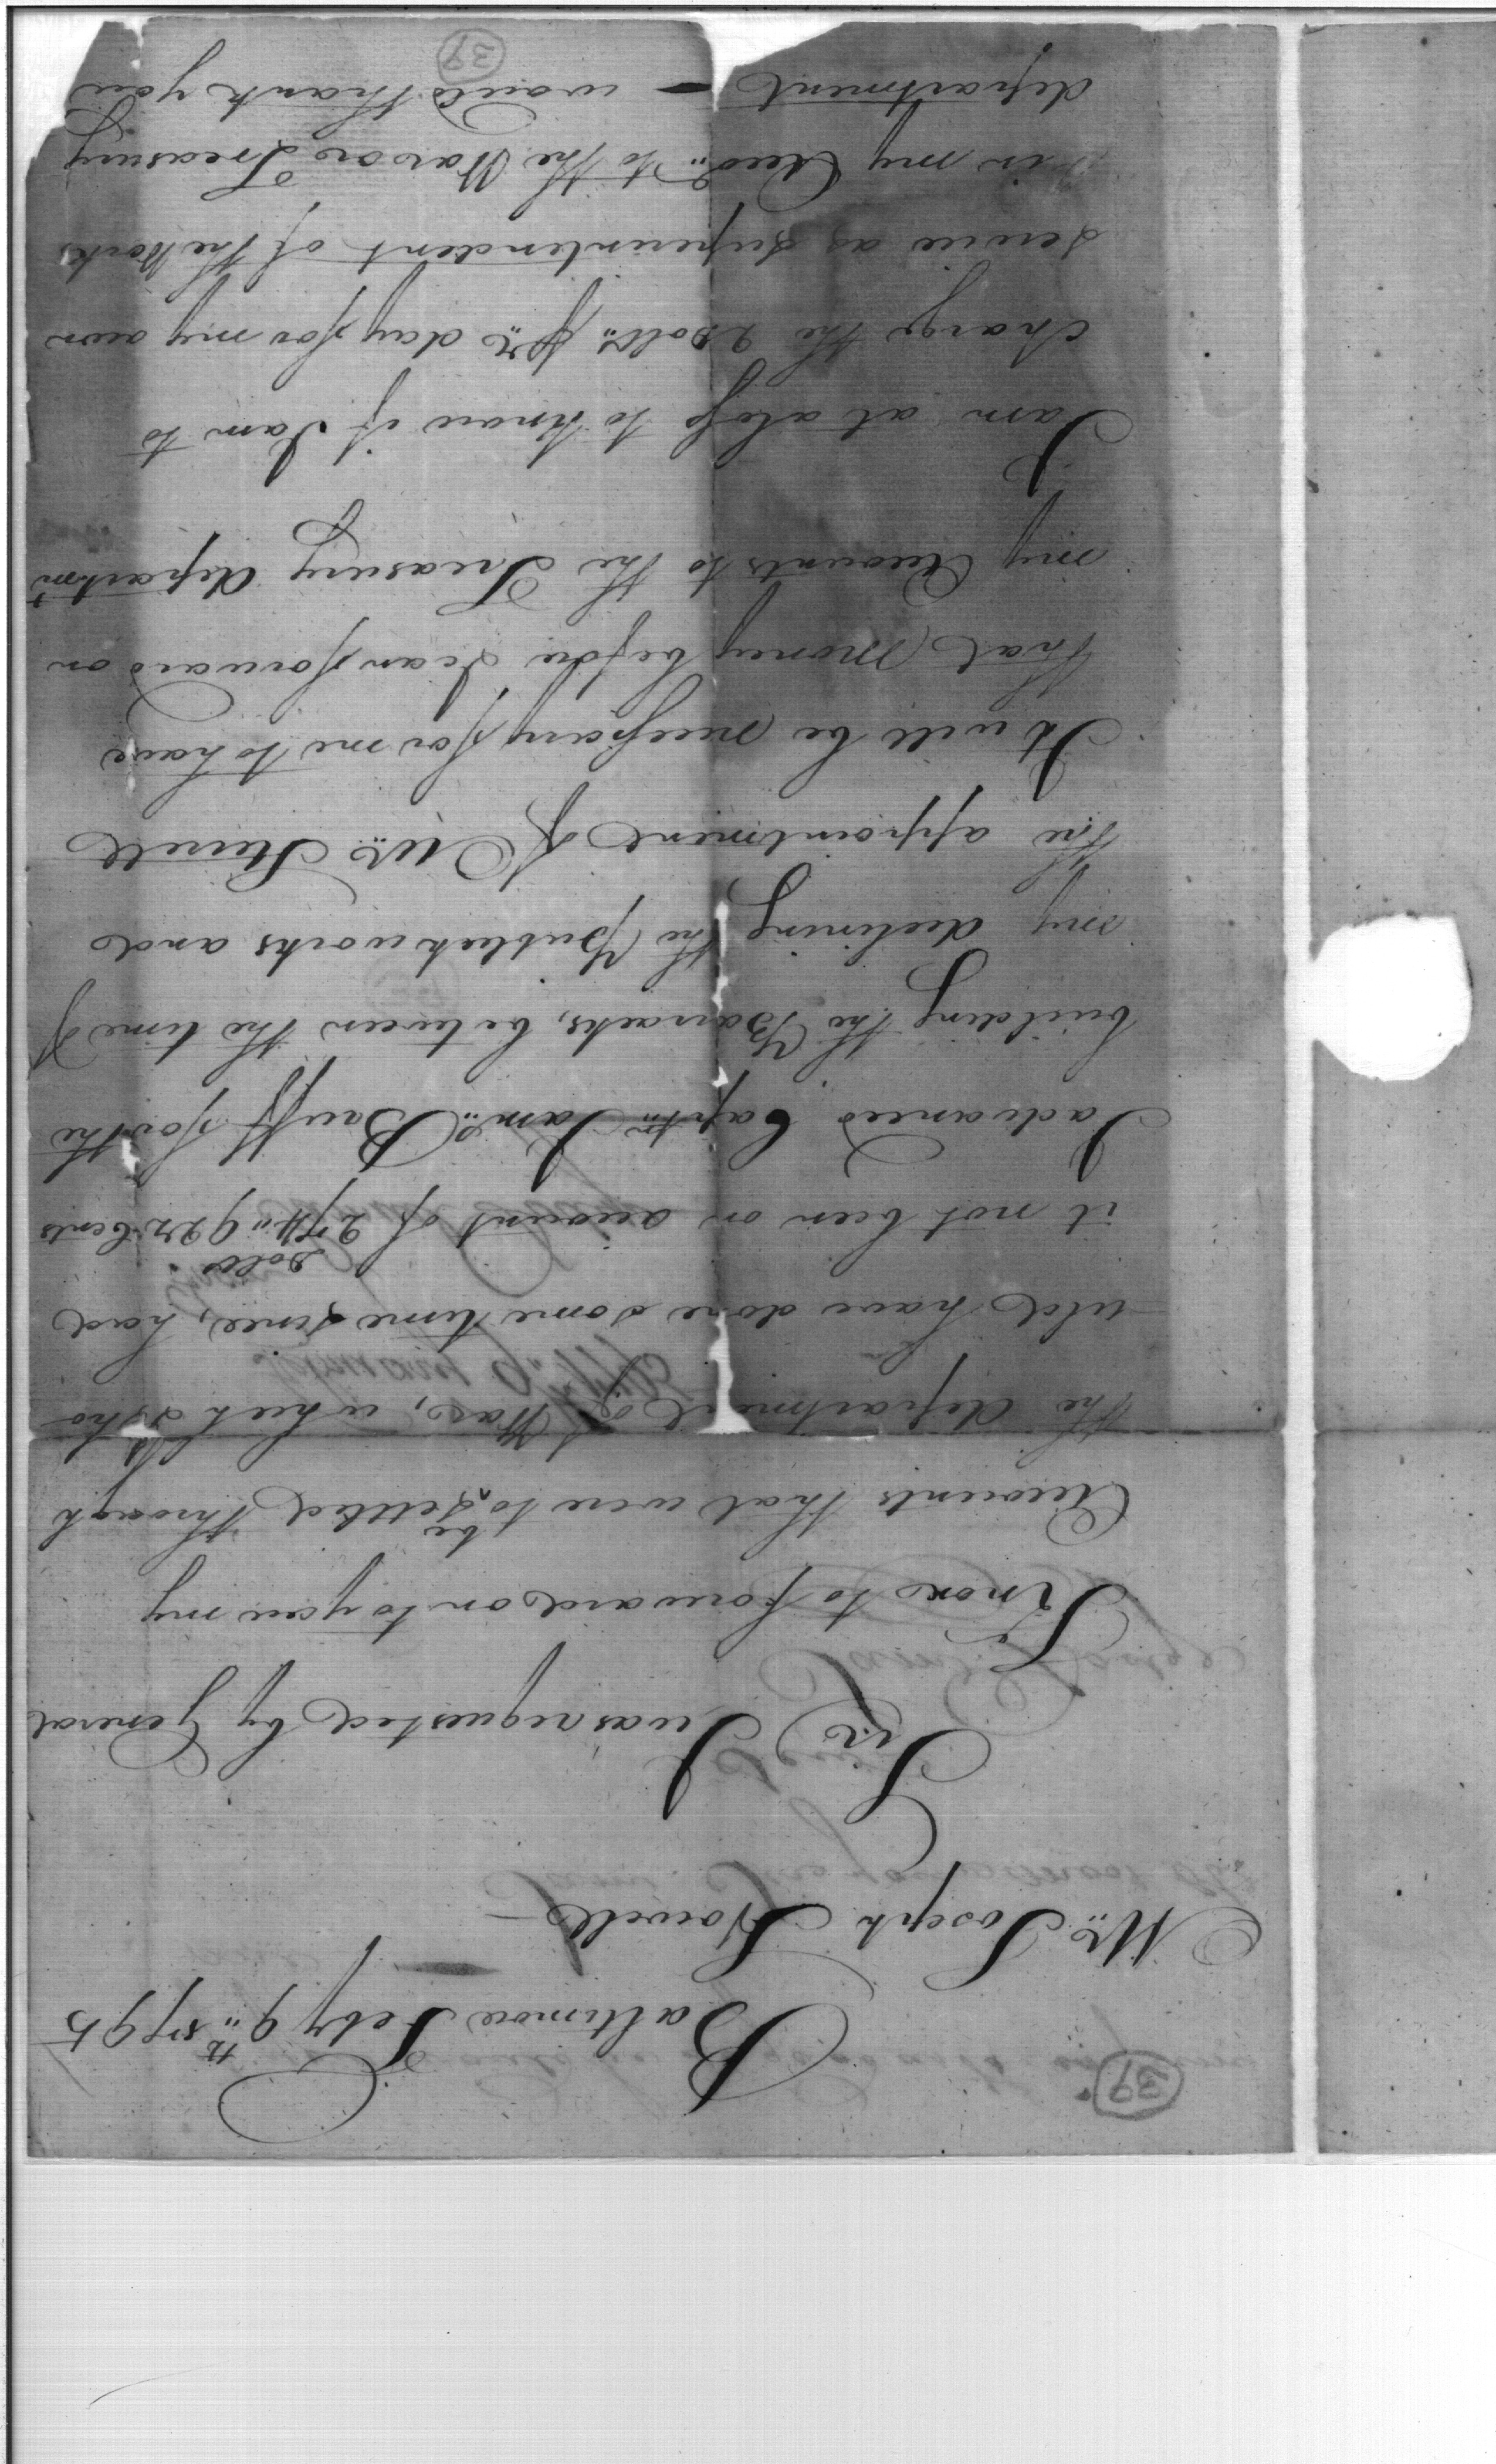 39
Baltimore Feby 9th 1795
Mr. Joseph Howell
Sir
I was requested by General
Knox to forward on to you my
Accounts that were to be settled through
the department of War, which I sho-
uld have done some time since, had
it not been on account of 274 Dolls 92 Cents
I advanced Captn Saml. for the
building the Barracks, between the time of
my declining the Publick works and
the appointment of Mr.
It will be necessary for me to have
that money before I can forward on
my Accounts to the Treasury departmt
I am at a loss to know if I am to
charge the 2 Dolls. pr. day for my own
service as superintendent of the Works
in my Accot. to the War or Treasury
department — would thank you
39